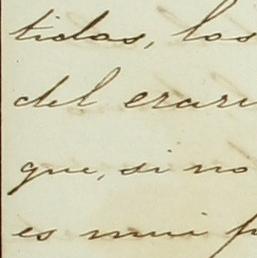 tidas, los
del erari
que, si no
es mui p